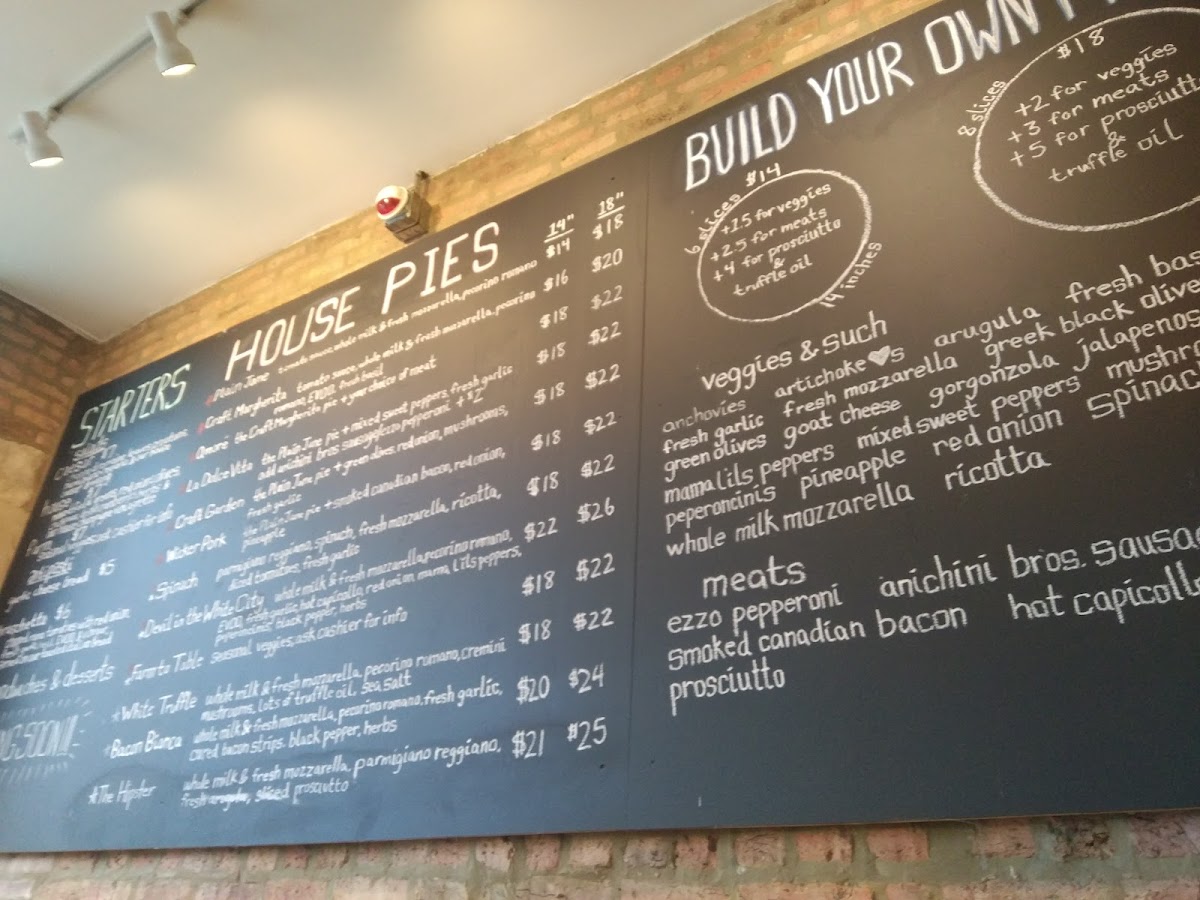 STARTERS
garlic cheese bread $5
$6
& desserts
HOUSE PIES
14" 18"
Plain Jane tomato sauce, whole milk & fresh mozzarella, pecorino romano $14 $18
Craft Margherita tomato sauce, whole milk & fresh mozzarella, pecorino $16 $20
romano, EVOO, fresh basil
Amore the Craft Margherita pie + your choice of meat $18 $22
La Dolce Vita the Plain Jane pie + mixed sweet peppers, fresh garlic $18 $22
add anichini bros. sausage/ezzo pepperoni + $2
Craft Garden the Plain Jane pie + green olives, red onion, mushrooms, $18 $22
fresh garlic
Wicker Park the Plain Jane pie + smoked canadian bacon, red onion, $18 $22
pineapple
Spinach parmigiano reggiano, spinach, fresh mozzarella, ricotta, $18 $22
diced tomatoes, fresh garlic
Devil in the White City whole milk & fresh mozzarella, pecorino romano, $22 $26
EVOO, fresh garlic, hot capicolla, red onion, mama lil's peppers,
black pepper, herbs
Farm to Table seasonal veggies, ask cashier for info $18 $22
White Truffle whole milk & fresh mozzarella, pecorino romano, cremini $18 $22
mustrooms, lots of truffle oil, sea salt
Bacon Bianca whole milk & fresh mozzarella, pecorino romano, fresh garlic, $20 $24
cured bacon strips, black pepper, herbs
The Hipster whole milk & fresh mozzarella, parmigiano reggiano, $21 $25
fresh arugula, sliced prosciutto
BUILD YOUR OWN
6 slices $14
+1.5 for veggies
+2.5 for meats
+4 for prosciutto
&
truffle oil
14 inches
8 slices $18
+2 for veggies
+3 for meats
+5 for
&
truffle oil
veggies & such
anchovies artichoke♥s arugula fresh
fresh garlic fresh mozzarella greek black
green olives goat cheese gorgonzola jalapenos
mama lil's peppers mixed sweet peppers
peperoncinis pineapple red onion
whole milk mozzarella ricotta
meats
ezzo pepperoni anichini bros.
smoked canadian bacon hot
prosciutto